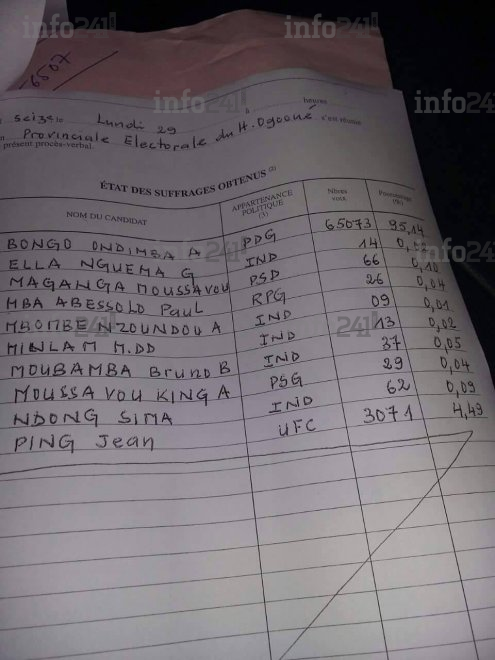 info241
6507
heures
seize Lundi 29 à
Provinciale Electorale du H. Ogooué s'est réunie
présent procès-verbal.
ÉTAT DES SUFFRAGES OBTENUS (2)
NOM DU CANDIDAT APPARTENANCE POLITIQUE (3) Nbres voix Pourcentage (%)
BONGO ONDIMBA A PDG 65073 95,14
ELLA NGUEMA G IND 14
MAGANGA MOUSSAVOU PSD 66 0,10
MBA ABESSOLO Paul RPG 26 0,04
MBOMBE NZOUNDOU A IND 09 0,01
MINLAM M.DD IND 13 0,02
MOUBAMBA Bruno B IND 37 0,05
MOUSSAVOU KING A PSG 29 0,04
NDONG SIMA IND 62 0,09
PING Jean UFC 3071 4,49